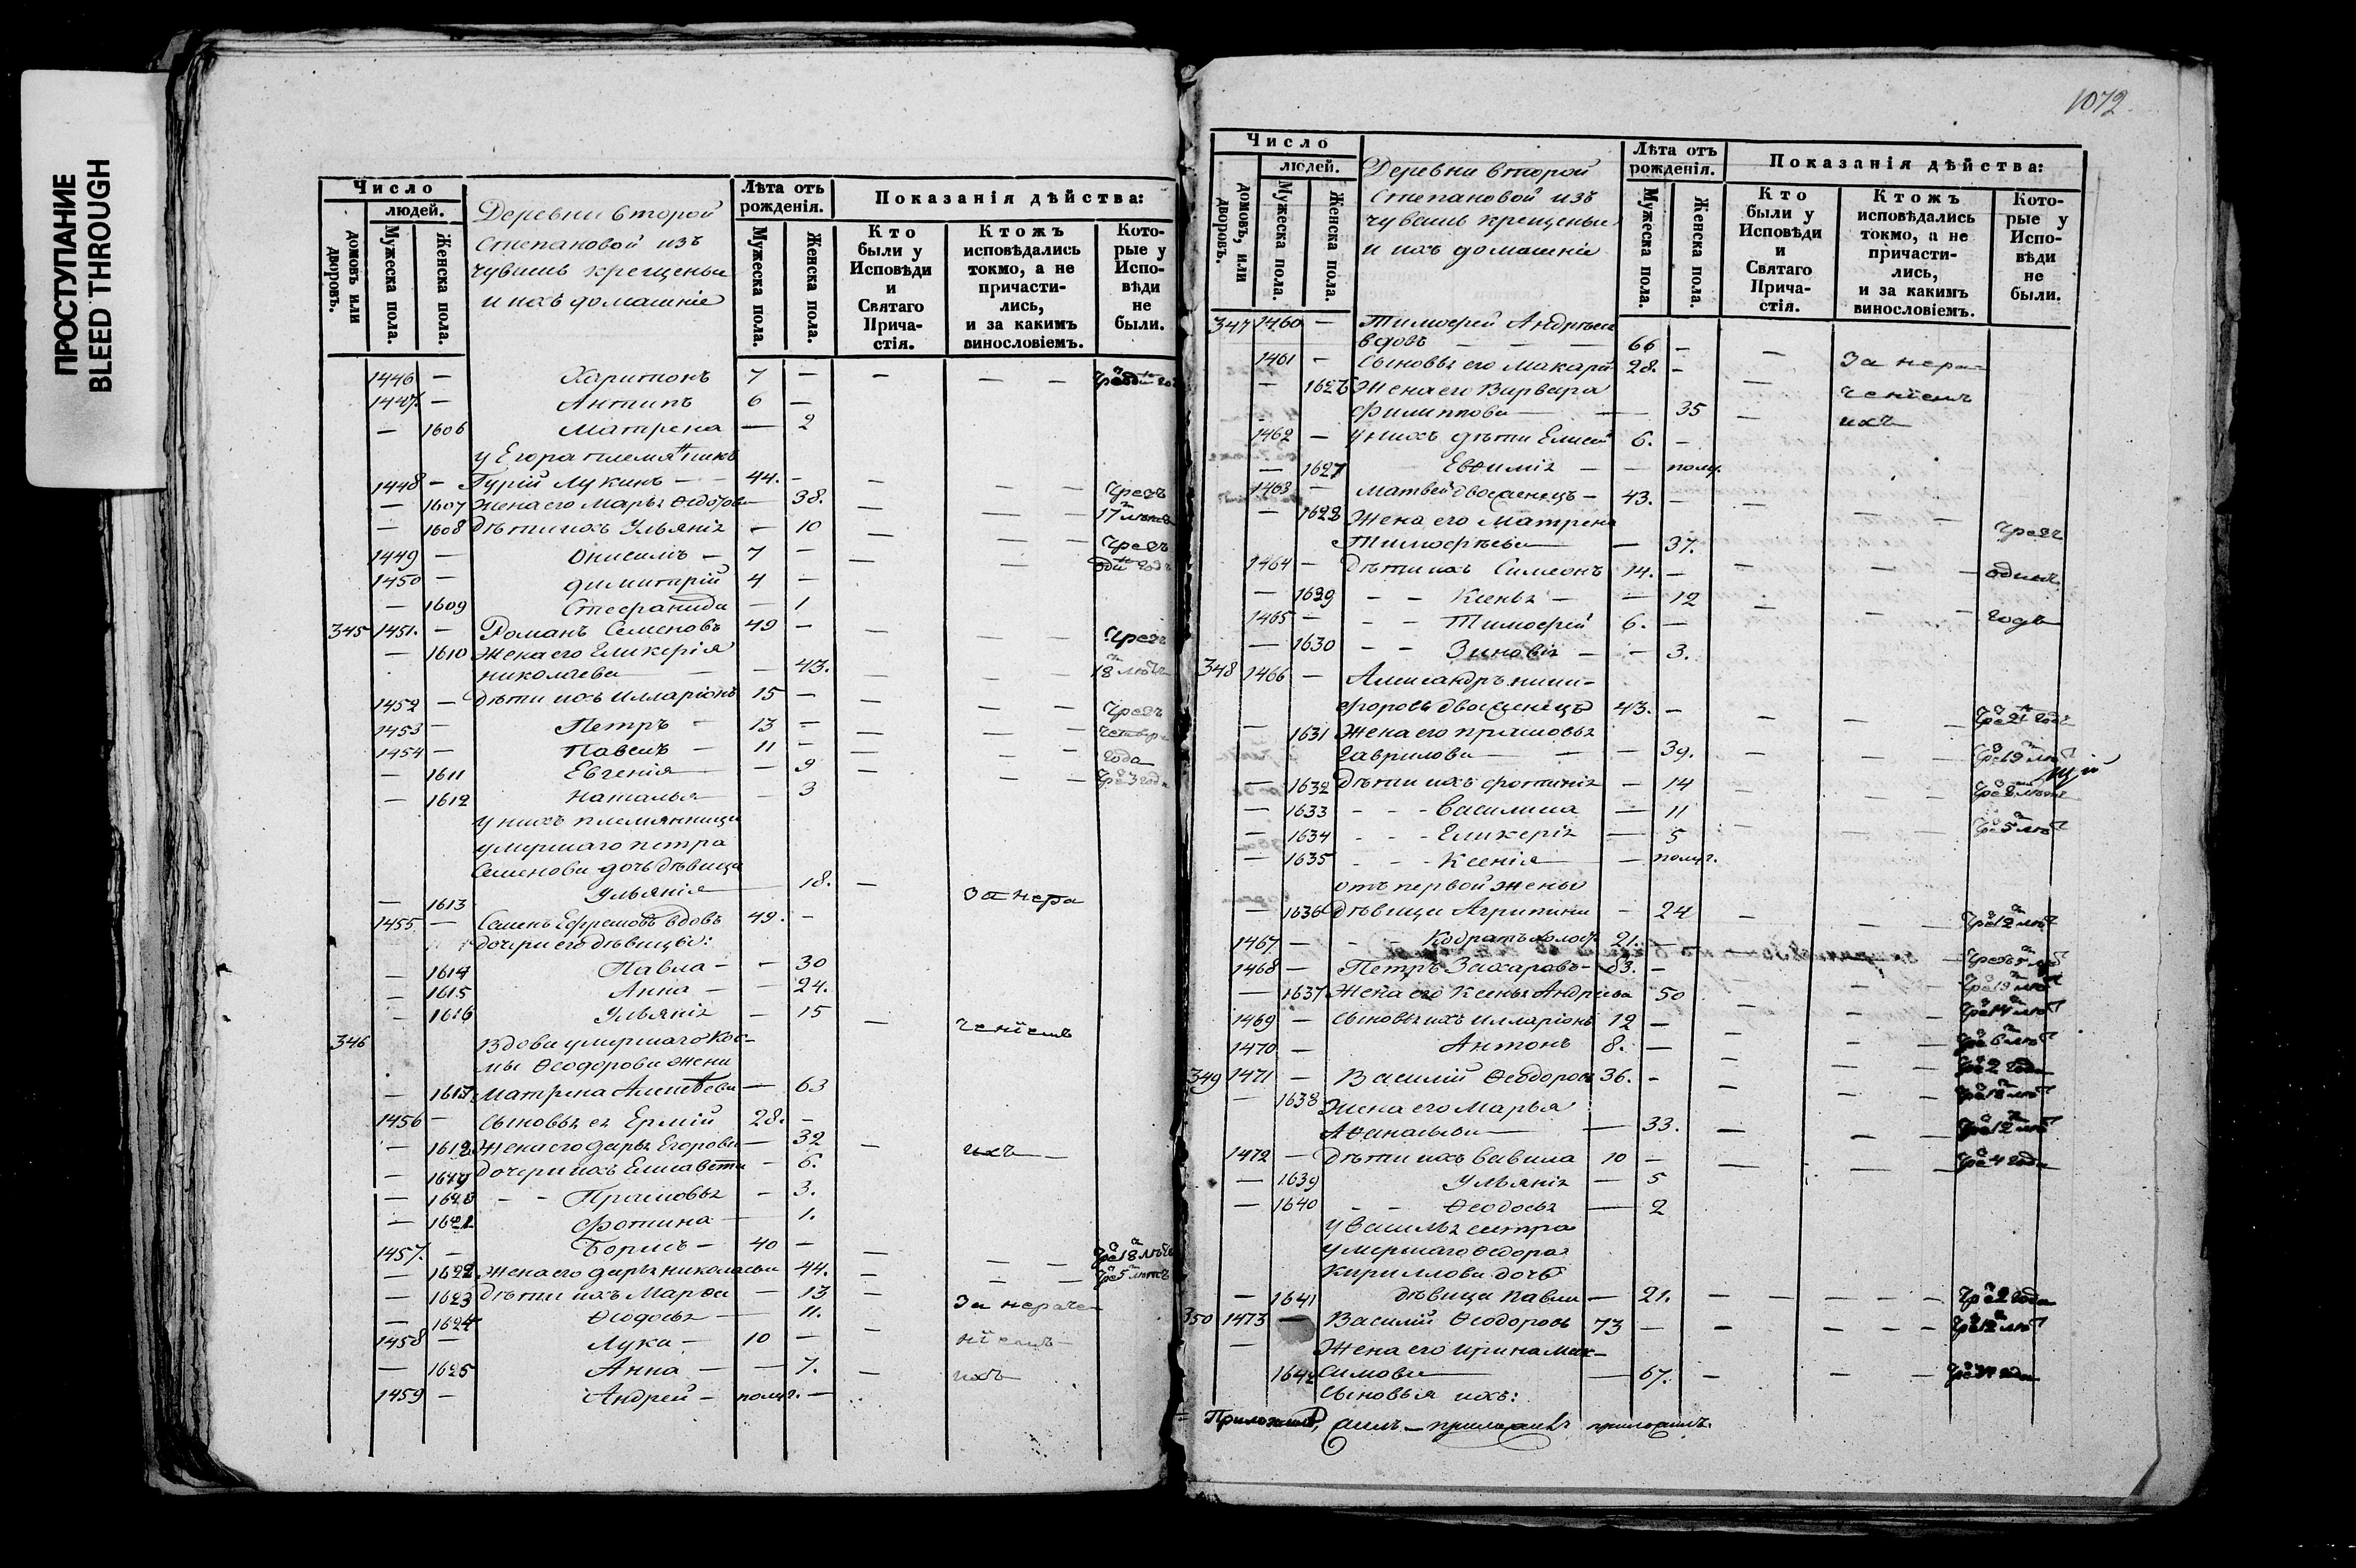 ПРОСТУПАНИЕ
BLEED THROUGH
Число
людей.
домовъ или дворовъ.
Мужеска пола.
Женска пола.
Деревни второй
Степановой изъ
чувашъ крещены
и ихъ домашніе
Лѣта отъ рожденія.
Мужеска пола.
Женска пола.
Показанія дѣйства:
Кто были у Исповѣди и Святаго Причастія.
Ктожъ исповѣдались токмо, а не причастились, и за какимъ винословіемъ.
Которые у Исповѣди не были.
1446 — Харитонъ 7 —
1447. — Антипъ 6 —
— 1606 Матрена — 2
у Егора племянникъ
1448 — Гурій Лукинъ — 44. — Чрезъ
— 1607 Жена его Марья Ѳедотова — 38. 17 лѣтъ
— 1608 Дѣти ихъ Ульянія — 10 Чрезъ
1449 — Онисимъ — 7 — годъ
1450 — Димитрій 4 —
— 1609 Стефанида — 1
345 1451. — Романъ Семеновъ 49 — Чрезъ
— 1610 Жена его Гликерія
Николаева — 43. 18 лѣтъ
1452 — Дѣти ихъ Илларіонъ 15 — Чрезъ
1453 — Петръ — 13 — четыре
1454 — Павелъ — 11 — года
— 1611 Евгенія — 9 Чрез 3 года
— 1612 Наталья — 3
у нихъ племянница
умершаго Петра
Семенова дочь дѣвица
— 1613 Ульянія — 18. — За нера
1455 — Семенъ Ефремовъ вдовъ 49. —
дочери его дѣвицы:
— 1614 Павла — — 30
— 1615 Анна — — 24.
— 1616 Ульянія — 15 — ченіемъ
346 Вдова умершаго Кос-
мы Ѳеодорова жена
— 1617 Матрена Алексѣева — 63
1456 — Сыновья ея Ермій 28. —
— 1618 Жена его Дарья Егорова — 32 — ихъ —
— 1619 Дочери ихъ Елисавета — 6.
— 1620 — — Прасковья — 3.
— 1621 Фотина — 1.
1457. — Борисъ — 40 — Чрез 18 лѣтъ
— 1622. Жена его Дарья Николаева 44. — Чрез 5 лѣтъ
— 1623 Дѣти ихъ Марфа — 13 — За нераче-
— 1624 Ѳеодосья — 11.
1458 — Лука — 10 — ніемъ
— 1625 Анна — — 7. — ихъ
1459 — Андрей — полуг. —
1072
Число
людей.
домовъ, или дворовъ.
Мужеска пола.
Женска пола.
Деревни второй
Степановой изъ
чувашъ крещены
и ихъ домашніе
Лѣта отъ рожденія.
Мужеска пола.
Женска пола.
Показанія дѣйства:
Кто были у Исповѣди и Святаго Причастія.
Ктожъ исповѣдались токмо, а не причастились, и за какимъ винословіемъ.
Которые у Исповѣди не были.
347 1460 — Тимофей Андреевъ
вдовъ — — — 66 —
1461 — Сыновья его Макарій 28. — За нера
— 1626 Жена его Варвара
Филиппова — 35 — ченіемъ
1462 — У нихъ дѣти Елисей 6. — ихъ
— 1627 Евфимія — — полу.
1463 — Матвей двоженецъ — 43. —
— 1628 Жена его Матрена Чрезъ
Тимофеева — 37.
1464 — Дѣти ихъ Симеонъ 14. — одинъ
— 1629 — — Ксенья — — 12
1465 — — — Тимофей 6. — годъ
— 1630 — — Зиновія — — 3.
348 1466 — Александръ Ники-
форовъ двоженецъ 43. —
— 1631 Жена его Прасковья
Гаврилова — — 39.
— 1632 Дѣти ихъ Фотинія — 14
— 1633 — — Василиса — 11
— 1634 — — Гликерія — 5
— 1635 — — Ксенія — полуг.
отъ первой жены
— 1636 Дѣвица Агрипина — 24 Чрез 12 лѣтъ
1467 — — — Кодратъ холост 21. —
1468 — Петръ Захаровъ — 53. —
— 1637 Жена его Ксенья Андреева 50
1469 — Сыновья ихъ Илларіонъ 12 —
1470 — Антонъ 8. —
349 1471 — Василій Ѳеодоровъ 36. —
— 1638 Жена его Марья
Аѳанасьева — 33.
1472 — Дѣти ихъ Вавила 10 — Чрез 4 года
— 1639 Ульянія — 5
— 1640 — — Ѳеодосья — 2
у Василья сестра
умершаго Ѳедора
Кириллова дочь
— 1641 дѣвица Павла — 21. Чрез 2 года
350 1473 — Василій Ѳеодоровъ 73 —
— Жена его Ирина Мак-
1642 симова — 67.
Сыновья ихъ: